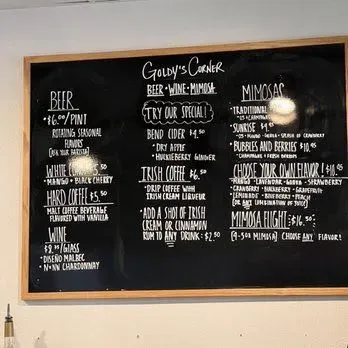 GOLDY'S CORNER
BEER - WINE - MIMOSA
TRY OUR SPECIAL!
BEER
$6.00/PINT
ROTATING SEASONAL
FLAVORS
(ASK YOUR BARISTA)
WHITE 5.50
• MANGO • BLACK CHERRY
HARD COFFEE $5.50
MALT COFFEE BEVERAGE
FLAVORED WITH VANILLA
WINE
/GLASS
• DISEÑO MALBEC
CHARDONNAY
BEND CIDER
• DRY APPLE
• HUCKLEBERRY GINGER
IRISH COFFEE $6.50
• DRIP COFFEE WITH
IRISH CREAM LIQUEUR
• ADD A SHOT OF IRISH
CREAM OR CINNAMON
RUM TO ANY DRINK: $2.50
MIMOSAS
TRADITIONAL
• OJ + CHAMPAGNE
SUNRISE
• OJ - MANGO - GUAVA - SPLASH OF CRANBERRY
BUBBLES AND BERRIES $10.95
• CHAMPAGNE + FRESH BERRIES
CHOOSE YOUR OWN FLAVOR!
• MANGO - LAVENDAR - GUAVA - STRAWBERRY
• CRANBERRY - BLACKBERRY - GRAPEFRUIT
• LEMONADE - BLUEBERRY - PEACH
(OR ANY COMBINATION OF JUICE)
MIMOSA FLIGHT: $16.50
(4-5oz MIMOSA) CHOOSE ANY FLAVOR!